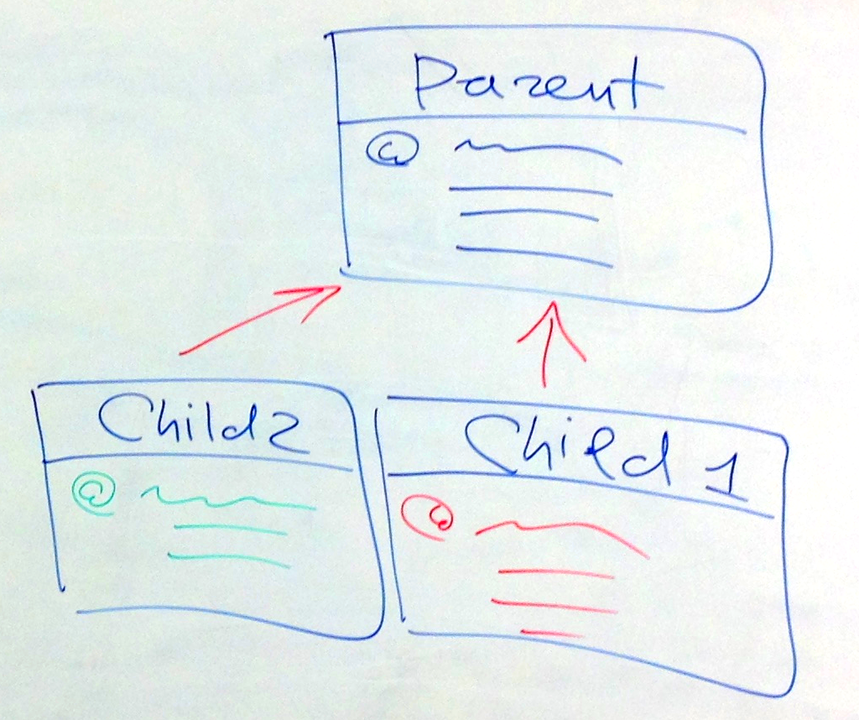 Parent
@
Child2
@
Child 1
@